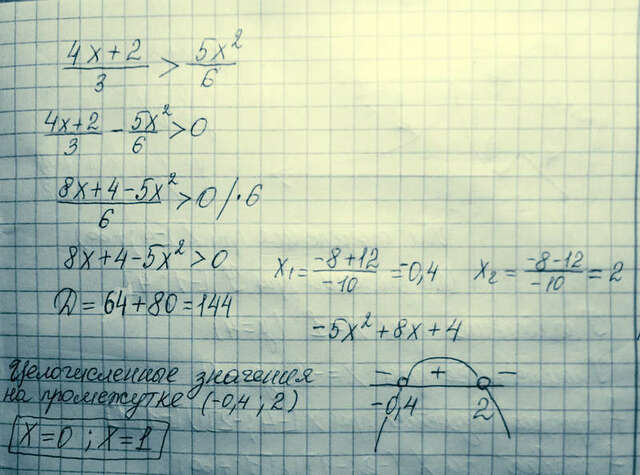 (4x+2)/3 > 5x²/6
(4x+2)/3 - 5x²/6 > 0
(8x+4-5x²)/6 > 0 /·6
8x+4-5x² > 0
D = 64+80 = 144
x₁ = (-8+12)/(-10) = -0,4
x₂ = (-8-12)/(-10) = 2
-5x²+8x+4
- + -
-0,4 2
Целочисленные значения
на промежутке (-0,4 ; 2)
x=0 ; x=1